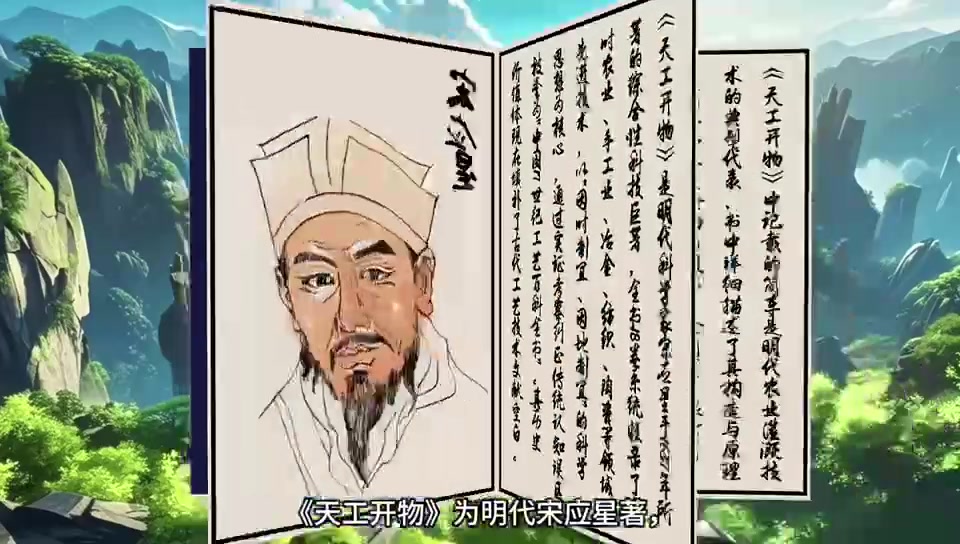 《天工开物》中记载的筒车是明代农业灌溉技
术的典型代表、书中详细描述了其构造与原理
《天工开物》是明代科学家宋应星于1637年所
著的综合性科技巨著，全书18卷系统收录了
时农业、手工业、冶金、纺织、陶瓷等领域
先进技术，以“因时制宜、因地制宜”的科学
思想为核心，通过实证考察纠正传统认知误
被誉为“中国17世纪工艺百科全书。”其历史
价值体现在填补了古代工艺技术文献空白。
宋应星
《天工开物》为明代宋应星著。